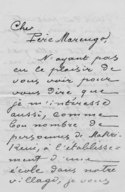 Cher
Père Marengo,
N'ayant pas
eu le plaisir de
vous voir pour
vous dire que
je m'intéresse
aussi, comme
bon nombre de
personnes de
-Rémi, à l'établisse-
ment d'une
école dans notre
village, je vous